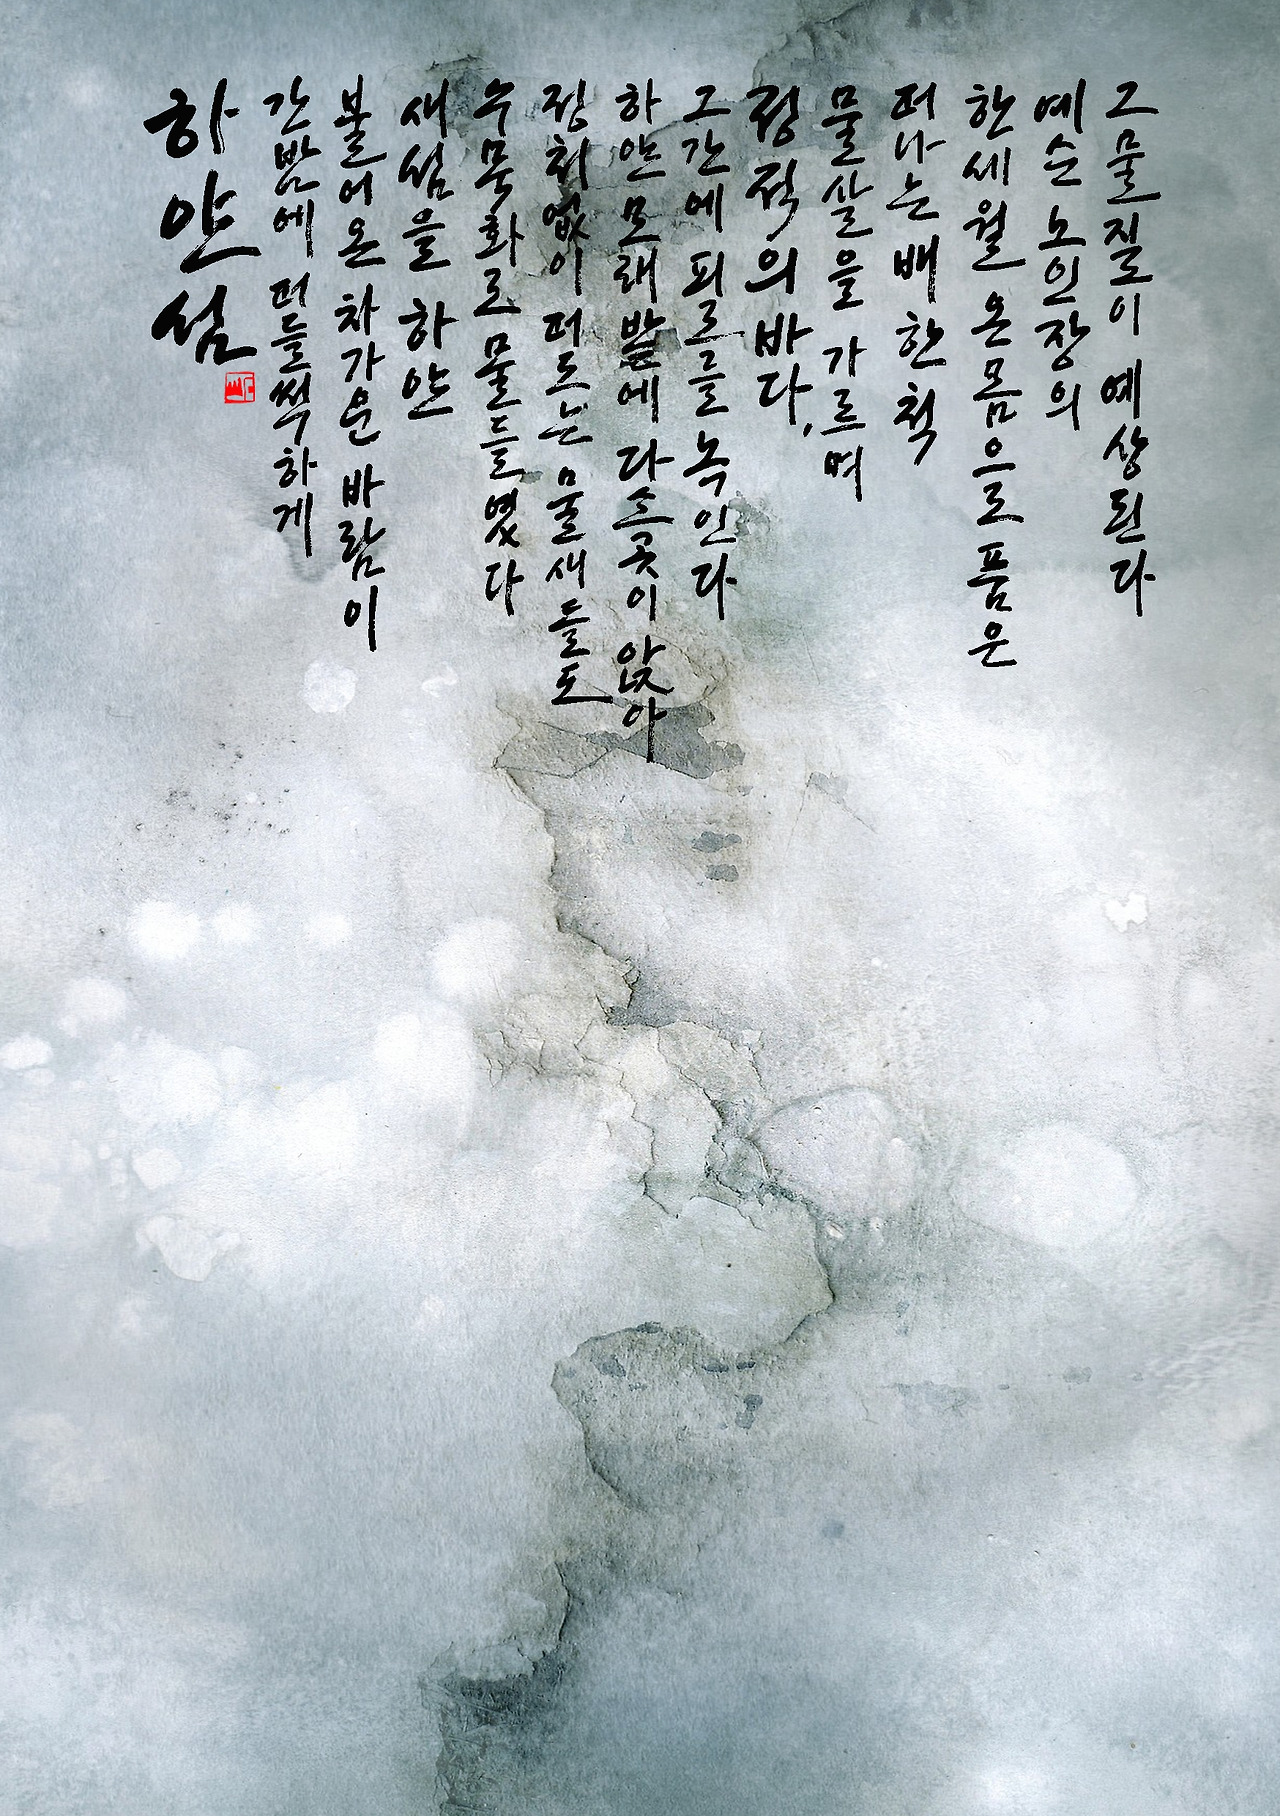 하얀섬
간밤에 떠들썩하게
불어온 차가운 바람이
새섬을 하얀
수묵화로 물들였다
정처없이 떠도는 물새들도
하얀 모래밭에 다소곳이 앉아
그간에 피로를 녹인다
정적의 바다,
물살을 가르며
떠나는 배 한 척
한세월 온몸으로 품은
예순 노인장의
그물질이 예상된다